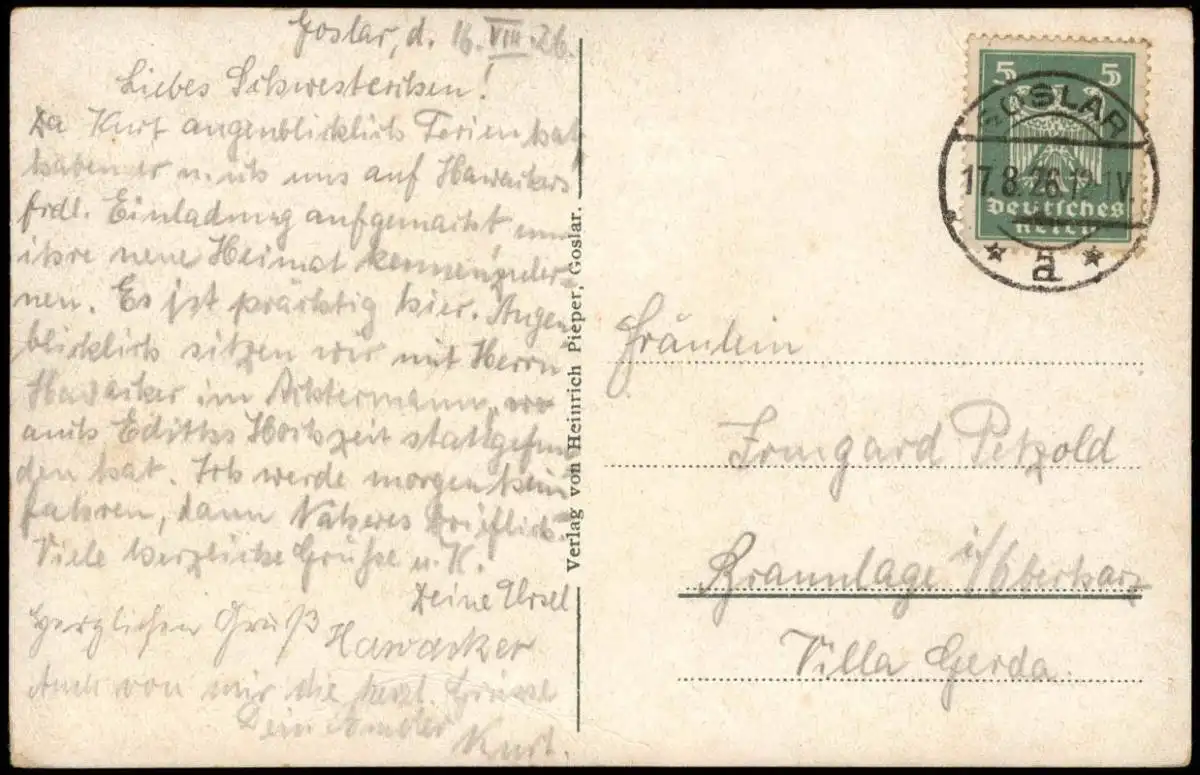 Goslar, d. 16. VIII. 26.
Liebes Schwesterchen!
Da Kurt augenblicklich Ferien hat
haben er u. ich uns auf Hawackers
frdl. Einladung aufgemacht um
ihre neue Heimat kennenzuler-
nen. Es ist prächtig hier. Augen-
blicklich sitzen wir mit Herrn
Hawacker im Achtermann, wo
auch Ediths Hochzeit stattgefun-
den hat. Ich werde morgen heim
fahren, dann Näheres brieflich.
Viele herzliche Grüße u. K.
Deine Ursel
Herzlichen Gruß
Hawacker
Auch von mir die herzl. Grüsse
Dein Bruder
Kurt.
Verlag von Heinrich Pieper, Goslar.
5 5
Deutsches
Reich
GOSLAR
17.8.26.12-1V.
* a *
Fräulein
Irmgard Petzold
Braunlage i/Oberharz
Villa Gerda.